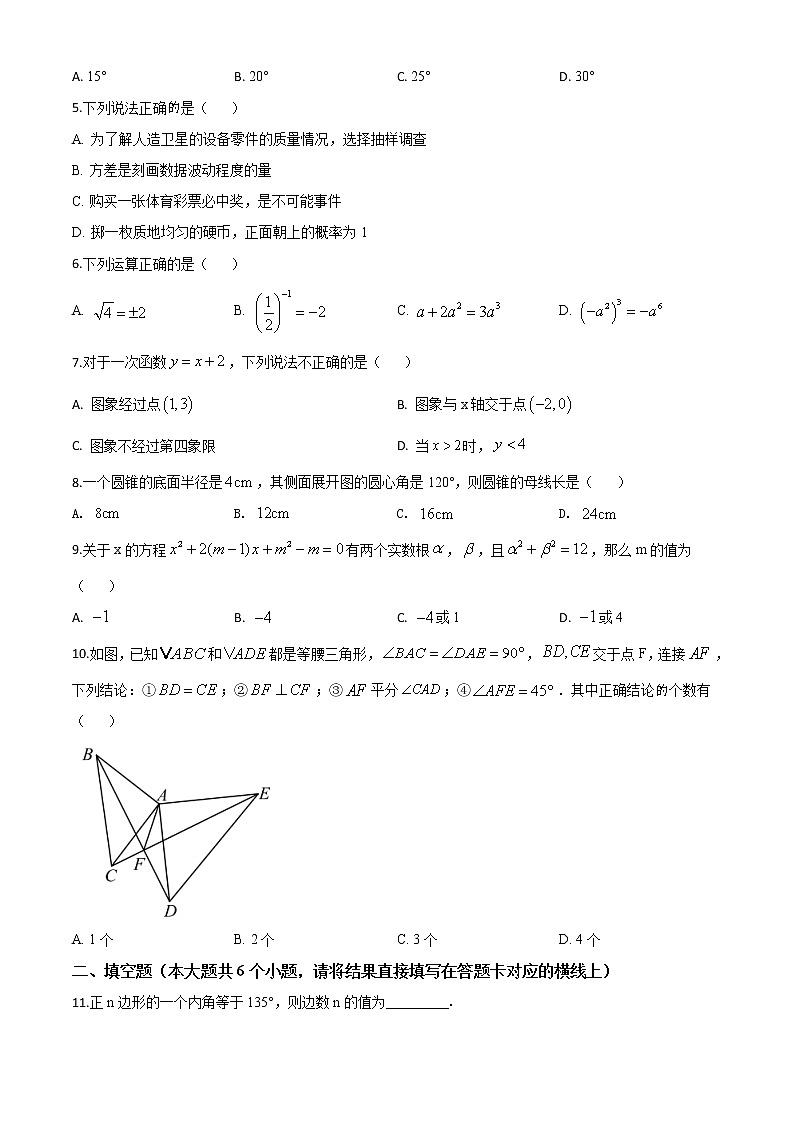 A. 15° B. 20° C. 25° D. 30°
5.下列说法正确的是（ ）
A. 为了解人造卫星的设备零件的质量情况，选择抽样调查
B. 方差是刻画数据波动程度的量
C. 购买一张体育彩票必中奖，是不可能事件
D. 掷一枚质地均匀的硬币，正面朝上的概率为 1
6.下列运算正确的是（ ）
A. √4 = ±2 B. (1/2)⁻¹ = −2 C. a + 2a² = 3a³ D. (−a²)³ = −a⁶
7.对于一次函数 y = x + 2，下列说法不正确的是（ ）
A. 图象经过点(1,3) B. 图象与 x 轴交于点(−2,0)
C. 图象不经过第四象限 D. 当 x > 2时，y < 4
8.一个圆锥的底面半径是 4cm，其侧面展开图的圆心角是 120°，则圆锥的母线长是（ ）
A. 8cm B. 12cm C. 16cm D. 24cm
9.关于 x 的方程 x² + 2(m − 1)x + m² − m = 0 有两个实数根 α，β，且 α² + β² = 12，那么 m 的值为
（ ）
A. −1 B. −4 C. −4或 1 D. −1或 4
10.如图，已知∨ABC和∨ADE都是等腰三角形，∠BAC = ∠DAE = 90°，BD, CE 交于点 F，连接 AF，
下列结论：①BD = CE；②BF ⊥ CF；③AF 平分∠CAD；④∠AFE = 45°．其中正确结论的个数有
（ ）
B
A
E
F
C
D
A. 1 个 B. 2 个 C. 3 个 D. 4 个
二、填空题（本大题共 6 个小题，请将结果直接填写在答题卡对应的横线上）
11.正 n 边形的一个内角等于 135°，则边数 n 的值为_________．